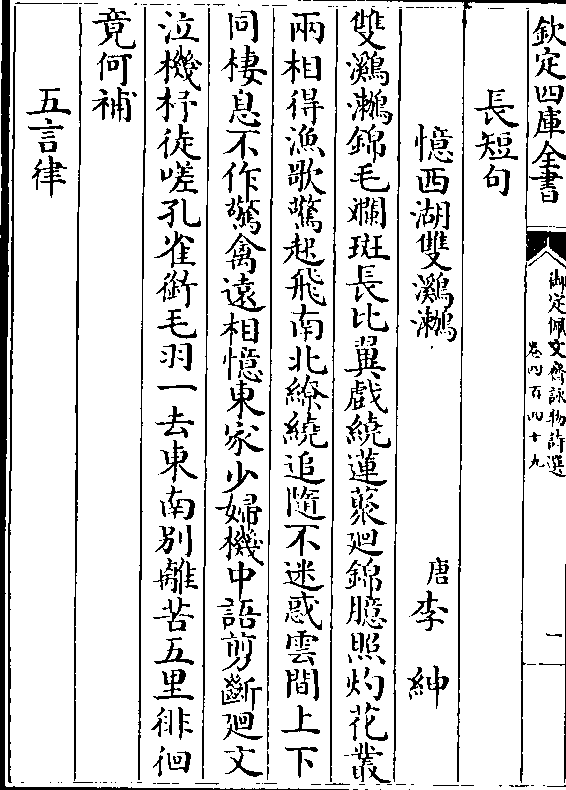 欽定四庫全書
御定佩文齋詠物詩選
卷四百四十九
一
長短句
憶西湖雙鸂鶒 唐李紳
雙鸂鶒錦毛斕斑長比翼戲繞蓮藂廻錦臆照灼花叢
兩相得漁歌驚起飛南北繚繞追隨不迷惑雲間上下
同棲息不作驚禽遠相憶東家少婦機中語剪斷廻文
泣機杼徒嗟孔雀銜毛羽一去東南別離苦五里徘徊
竟何補
五言律